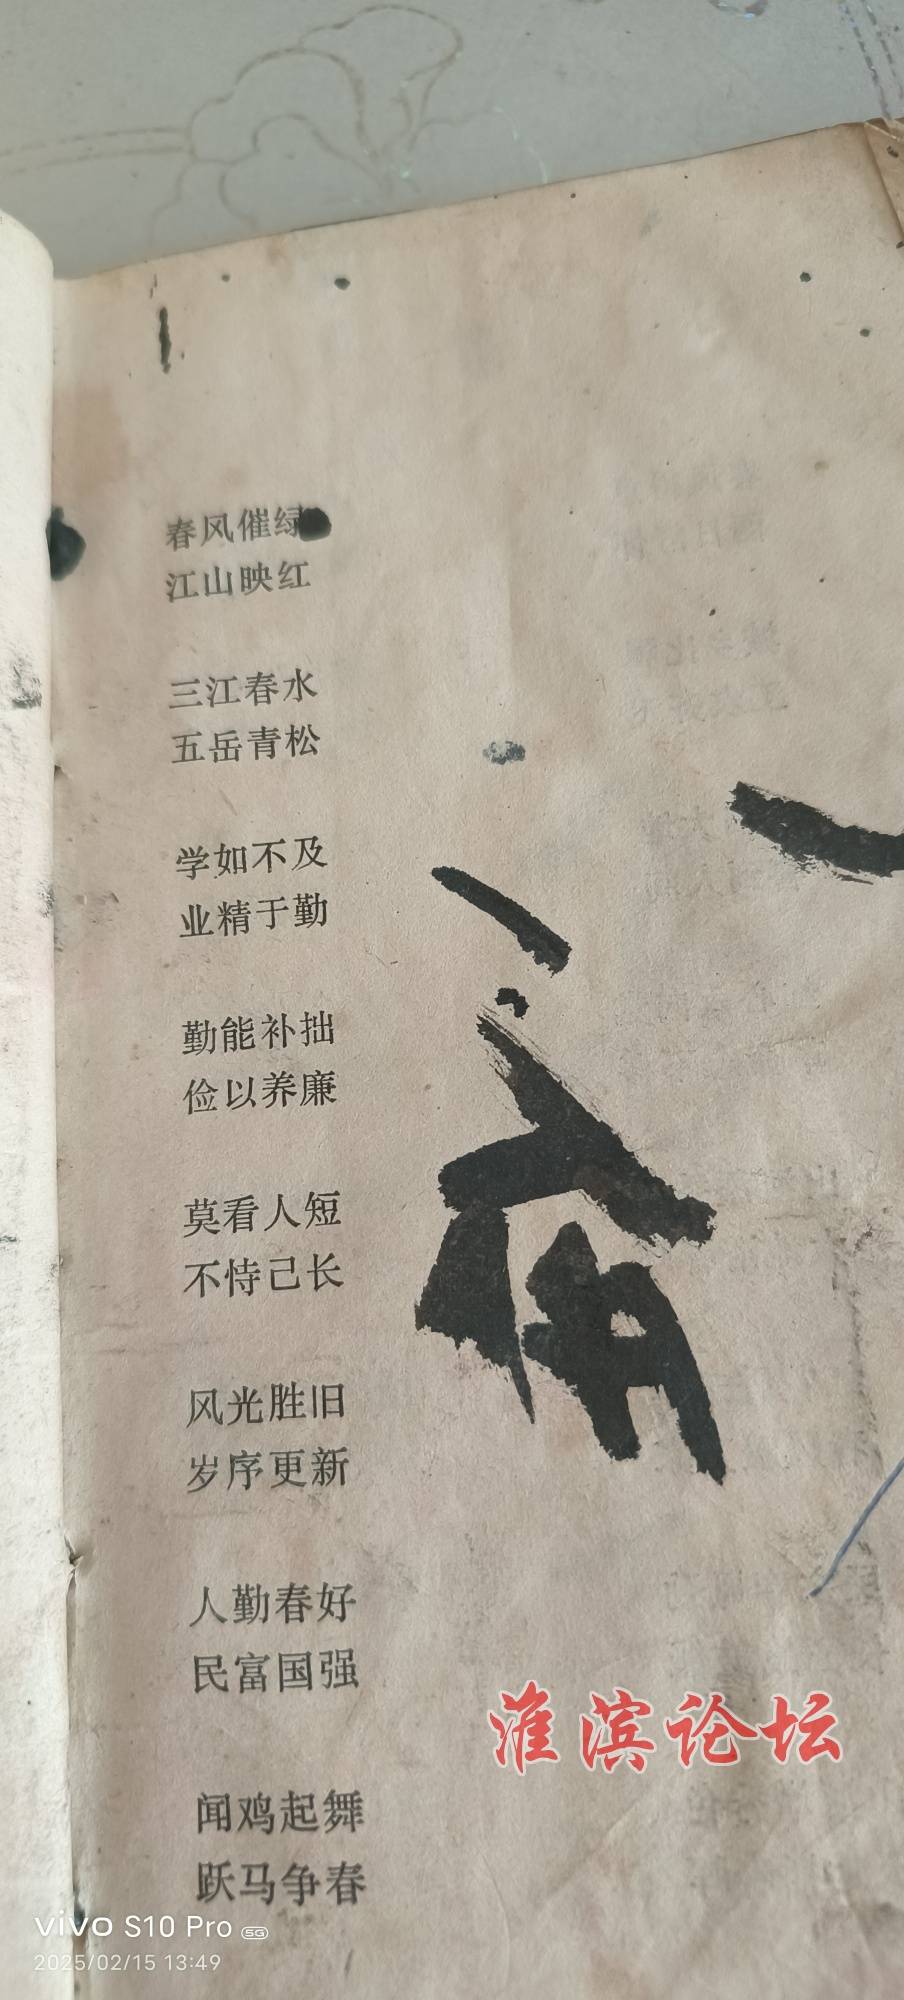 春风催绿
江山映红
三江春水
五岳青松
学如不及
业精于勤
勤能补拙
俭以养廉
莫看人短
不恃己长
风光胜旧
岁序更新
人勤春好
民富国强
闻鸡起舞
跃马争春
淮滨论坛
vivo S10 Pro 5G
2025/02/15 13:49